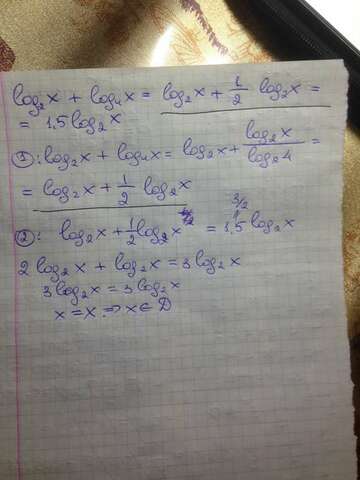 log₂x + log₄x = log₂x + 1/2 log₂x =
= 1,5 log₂x
①: log₂x + log₄x = log₂x + log₂x/log₂4 =
= log₂x + 1/2 log₂x
②: log₂x + 1/2 log₂x = 1,5 log₂x
3/2
2 log₂x + log₂x = 3 log₂x
3 log₂x = 3 log₂x
x = x ⇒ x ∈ D